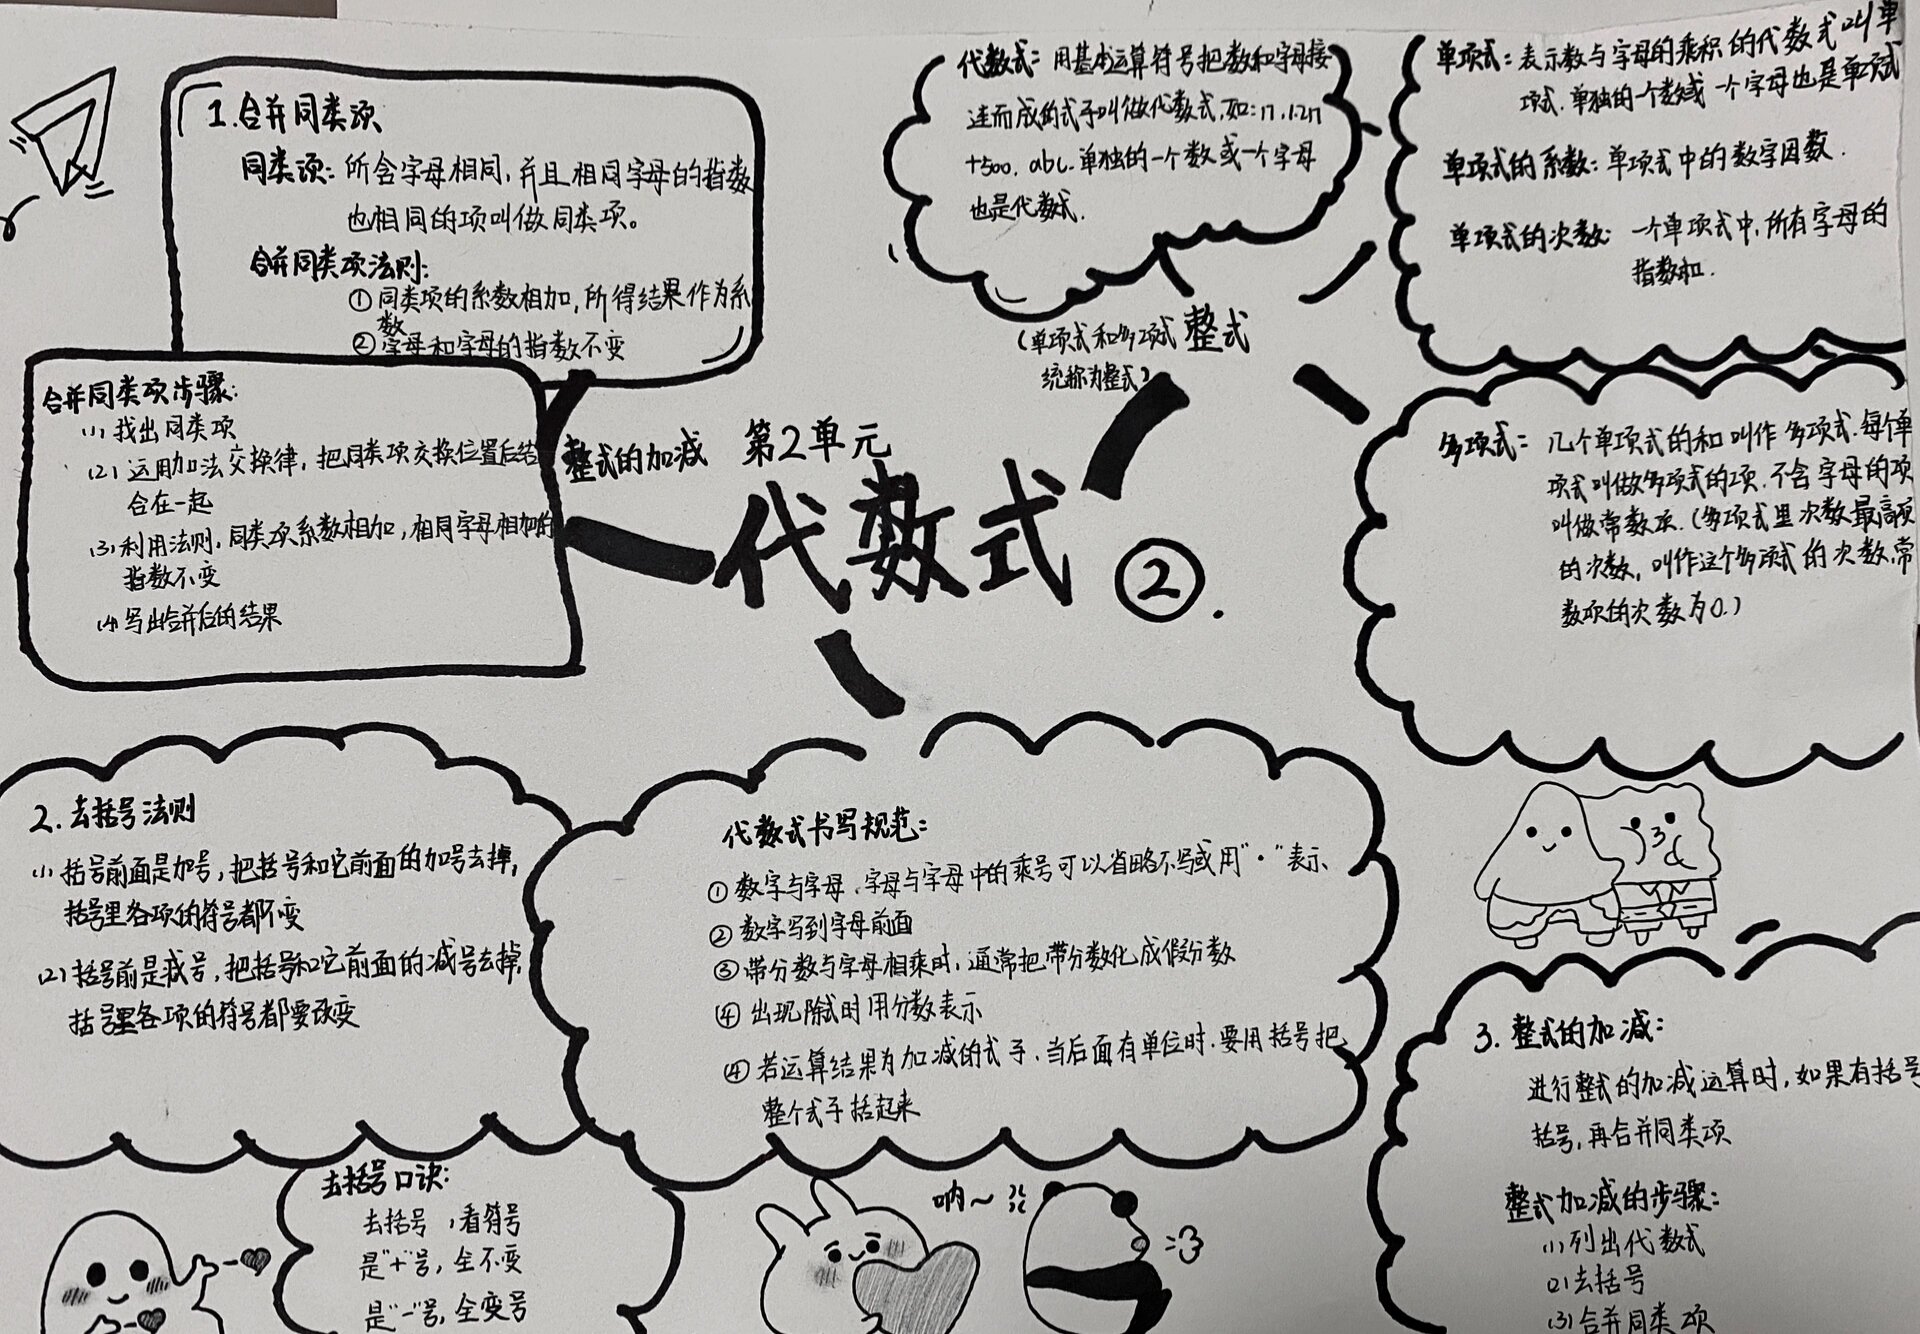 1.合并同类项
同类项：所含字母相同，并且相同字母的指数
也相同的项叫做同类项。
合并同类项法则：
①同类项的系数相加，所得结果作为系
数
②字母和字母的指数不变
合并同类项步骤：
(1)找出同类项
(2)运用加法交换律，把同类项交换位置后结
合在一起
(3)利用法则，同类项系数相加，相同字母相加的
指数不变
(4)写出合并后的结果
整式的加减
第2单元
代数式②.
代数式：用基本运算符号把数和字母接
连而成的式子叫做代数式，如：n，1.2n
+500，abc.单独的一个数或一个字母
也是代数式.
整式
(单项式和多项式
统称为整式)
单项式：表示数与字母的乘积的代数式叫单
项式.单独的一个数或一个字母也是单项式
单项式的系数：单项式中的数字因数.
单项式的次数：一个单项式中，所有字母的
指数和.
多项式：几个单项式的和叫作多项式.每个单
项式叫做多项式的项.不含字母的项
叫做常数项.(多项式里次数最高项
的次数，叫作这个多项式的次数，常
数项的次数为0.)
2.去括号法则
(1)括号前面是加号，把括号和它前面的加号去掉，
括号里各项的符号都不变
(2)括号前是减号，把括号和它前面的减号去掉，
括号里各项的符号都要改变
去括号口诀：
去括号，看符号
是“+”号，全不变
是“-”号，全变号
代数式书写规范：
①数字与字母、字母与字母中的乘号可以省略不写或用“·”表示、
②数字写到字母前面
③带分数与字母相乘时，通常把带分数化成假分数
④出现除式时用分数表示
④若运算结果为加减的式子，当后面有单位时，要用括号把
整个式子括起来
呐~
3.整式的加减：
进行整式的加减运算时，如果有括号
括号，再合并同类项
整式加减的步骤：
(1)列出代数式
(2)去括号
(3)合并同类项